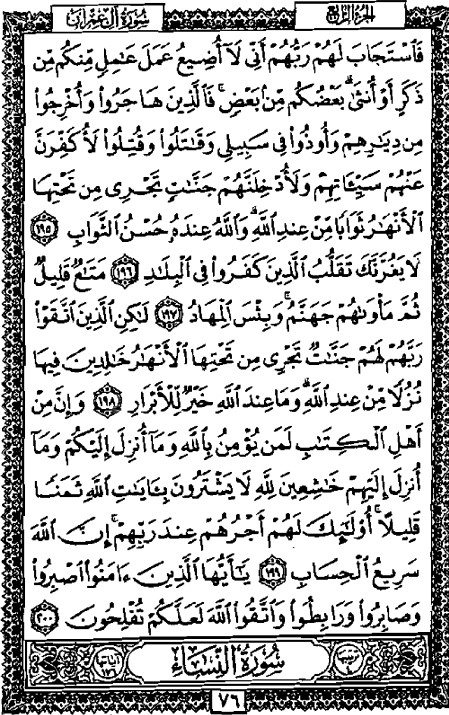 سُورَةُ آلِ عِمْرَان
الجُزْءُ الرَّابِعُ
فَاسْتَجَابَ لَهُمْ رَبُّهُمْ أَنِّي لَآ أُضِيعُ عَمَلَ عَامِلٍ مِّنكُم مِّن
ذَكَرٍ أَوْ أُنثَىٰ ۖ بَعْضُكُم مِّنۢ بَعْضٍ ۖ فَالَّذِينَ هَاجَرُوا۟ وَأُخْرِجُوا۟
مِن دِيَٰرِهِمْ وَأُوذُوا۟ فِي سَبِيلِي وَقَٰتَلُوا۟ وَقُتِلُوا۟ لَأُكَفِّرَنَّ
عَنْهُمْ سَيِّـَٔاتِهِمْ وَلَأُدْخِلَنَّهُمْ جَنَّٰتٍ تَجْرِي مِن تَحْتِهَا
الْأَنْهَٰرُ ثَوَابًا مِّنْ عِندِ اللَّهِ ۗ وَاللَّهُ عِندَهُۥ حُسْنُ الثَّوَابِ ١٩٥
لَا يَغُرَّنَّكَ تَقَلُّبُ الَّذِينَ كَفَرُوا۟ فِي الْبِلَٰدِ ١٩٦ مَتَٰعٌ قَلِيلٌ
ثُمَّ مَأْوَىٰهُمْ جَهَنَّمُ ۚ وَبِئْسَ الْمِهَادُ ١٩٧ لَٰكِنِ الَّذِينَ اتَّقَوْا۟
رَبَّهُمْ لَهُمْ جَنَّٰتٌ تَجْرِي مِن تَحْتِهَا الْأَنْهَٰرُ خَٰلِدِينَ فِيهَا
نُزُلًا مِّنْ عِندِ اللَّهِ ۗ وَمَا عِندَ اللَّهِ خَيْرٌ لِّلْأَبْرَارِ ١٩٨ وَإِنَّ مِنْ
أَهْلِ الْكِتَٰبِ لَمَن يُؤْمِنُ بِاللَّهِ وَمَآ أُنزِلَ إِلَيْكُمْ وَمَآ
أُنزِلَ إِلَيْهِمْ خَٰشِعِينَ لِلَّهِ لَا يَشْتَرُونَ بِـَٔايَٰتِ اللَّهِ ثَمَنًا
قَلِيلًا ۗ أُو۟لَٰٓئِكَ لَهُمْ أَجْرُهُمْ عِندَ رَبِّهِمْ ۗ إِنَّ اللَّهَ
سَرِيعُ الْحِسَابِ ١٩٩ يَٰٓأَيُّهَا الَّذِينَ ءَامَنُوا۟ اصْبِرُوا۟
وَصَابِرُوا۟ وَرَابِطُوا۟ وَاتَّقُوا۟ اللَّهَ لَعَلَّكُمْ تُفْلِحُونَ ٢٠٠
سُورَةُ النِّسَاءِ
آيَاتُهَا ١٧٦
٧٦